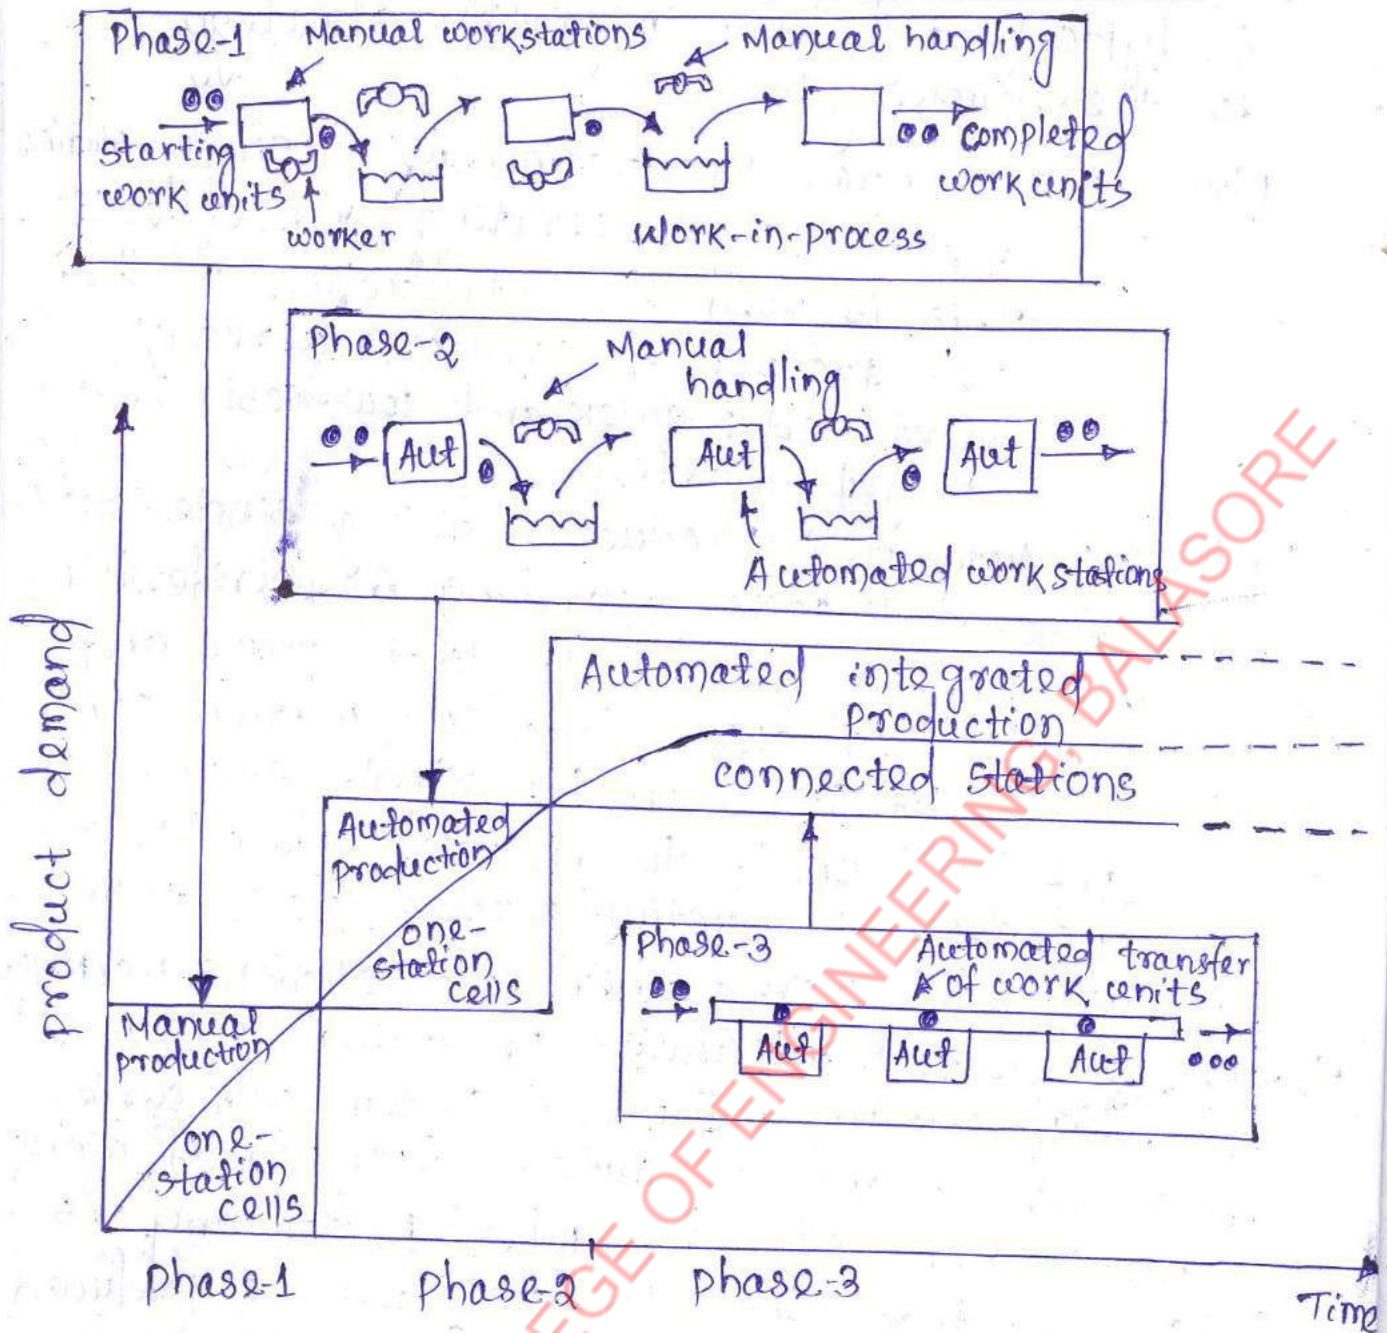 Phase-1
Manual workstations
Manual handling
starting
work units
worker
work-in-process
completed
work units
Phase-2
Manual
handling
Aut
Aut
Aut
Automated workstations
product demand
Automated integrated
production
connected stations
Automated
production
one-
station
cells
Phase-3
Automated transfer
of work units
Aut
Aut
Aut
Manual
production
one-
station
cells
Phase-1
Phase-2
Phase-3
Time
EGE OF ENGINEERING, BALASORE